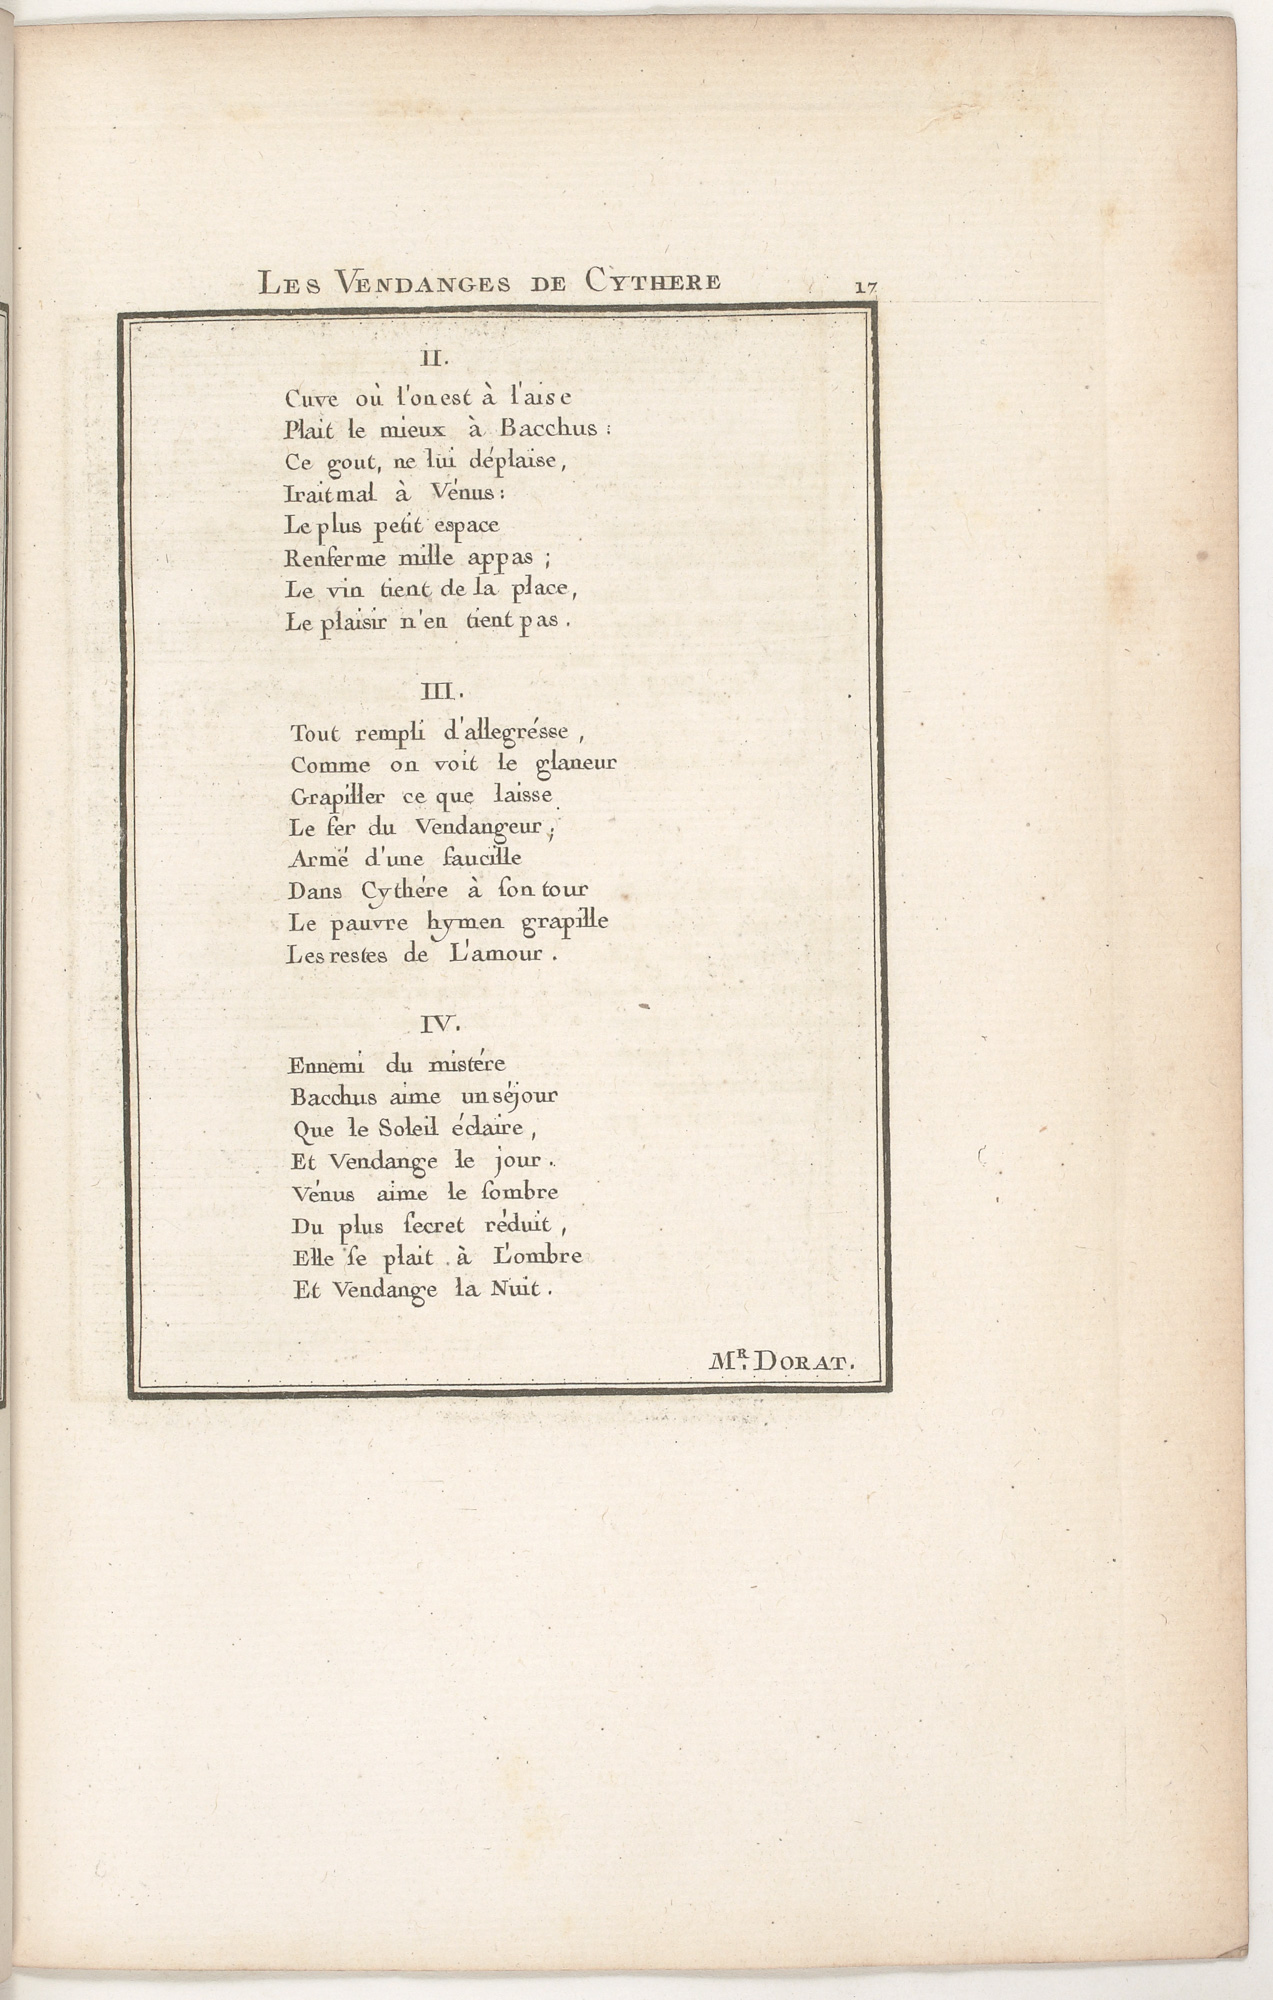 LES VENDANGES DE CYTHERE 17
II.
Cuve où l'on est à l'aise
Plait le mieux à Bacchus :
Ce gout, ne lui déplaise,
Irait mal à Vénus :
Le plus petit espace
Renferme mille appas ;
Le vin tient de la place,
Le plaisir n'en tient pas .
III.
Tout rempli d'allegrésse ,
Comme on voit le glaneur
Grapiller ce que laisse
Le fer du Vendangeur ;
Armé d'une faucille
Dans Cythére à ſon tour
Le pauvre hymen grapille
Les restes de L'amour .
IV.
Ennemi du mistére
Bacchus aime un séjour
Que le Soleil éclaire ,
Et Vendange le jour .
Vénus aime le ſombre
Du plus ſecret réduit ,
Elle ſe plait à L'ombre
Et Vendange la Nuit .
MR. DORAT.